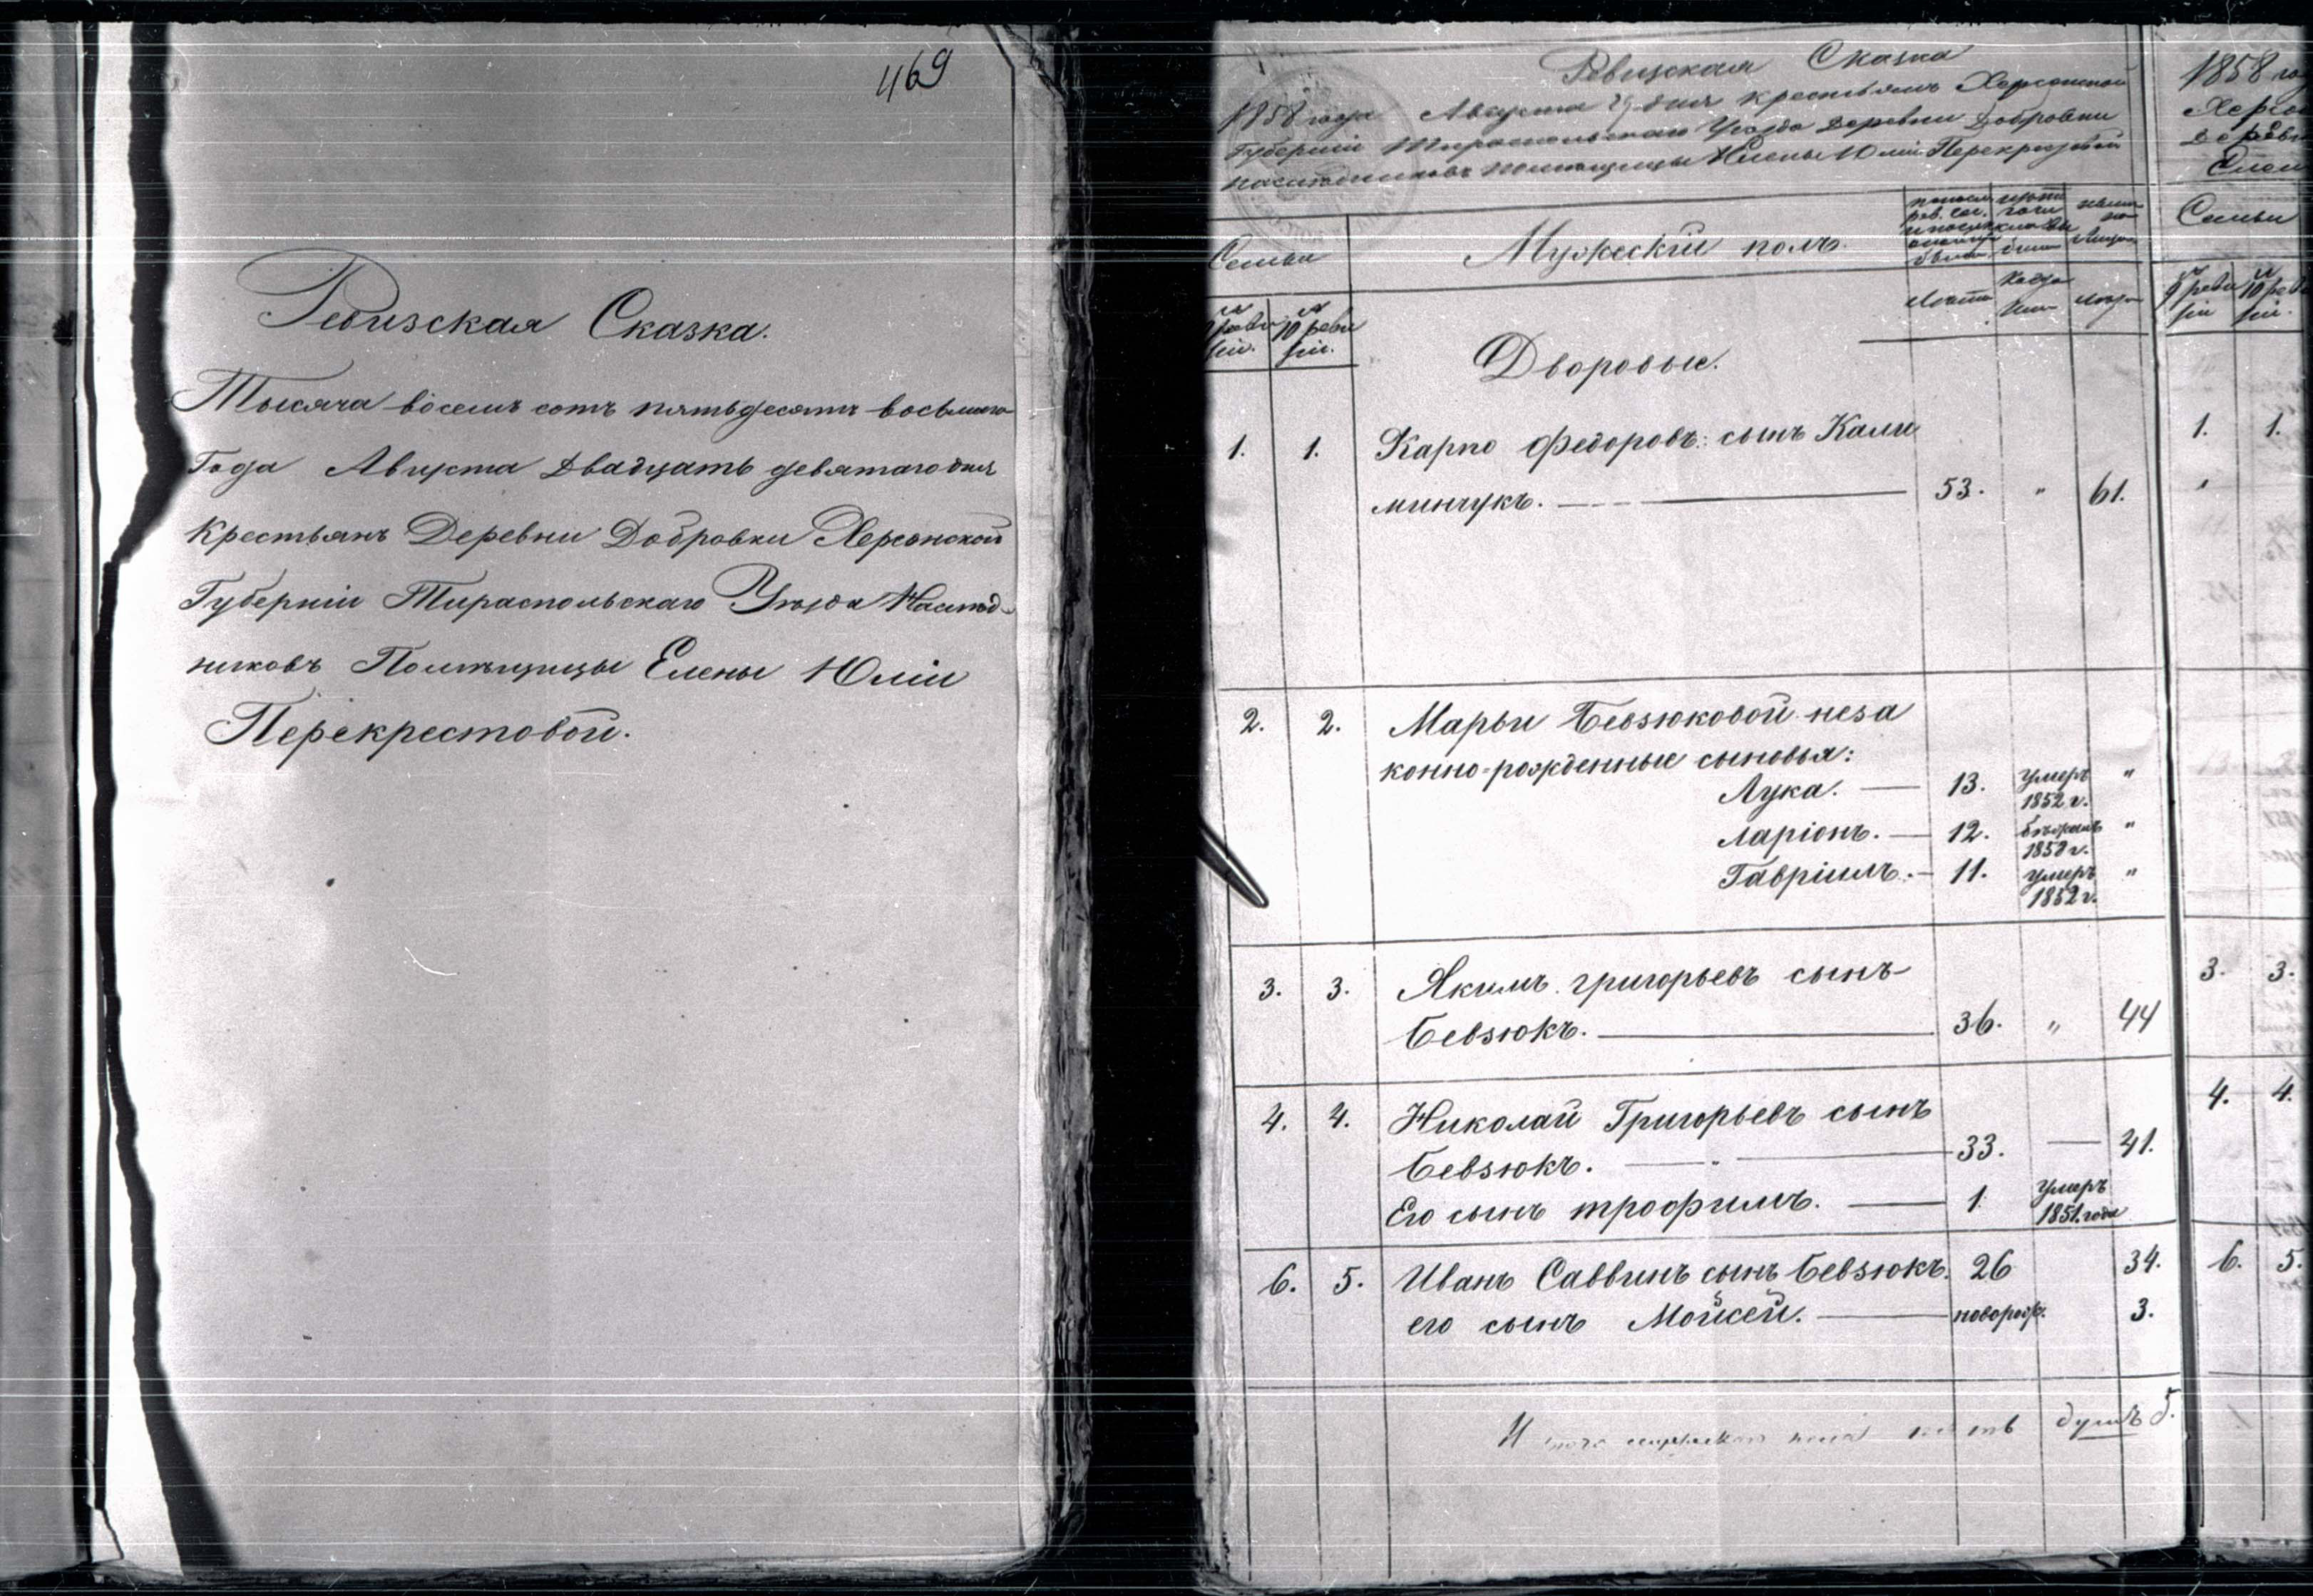 469
Ревизская Сказка.
Тысяча восемь сотъ пятьдесятъ восьмаго
Года Августа Двадцать девятаго дня
Крестьянъ Деревни Добровки Херсонской
Губерніи Тираспольскаго Уѣзда Наслѣд-
никовъ Помѣщицы Елены Юліи
Перекрестовой.
Ревизская Сказка
1858 года Августа 29 дня крестьянъ Херсонской
Губерніи Тираспольскаго Уѣзда Деревни Добровки
наслѣдниковъ помѣщицы Елены Юліи Перекрестовой
Семьи Мужескій полъ.
Лѣта Лѣта
9 реви 10 реви
сіи. сіи.
Дворовые.
1. 1. Карпо Федоровъ сынъ Кали
минчукъ. 53. " 61.
2. 2. Марьи Бевзюковой неза
конно-рожденные сыновья:
Лука. — 13. умеръ 1852 г. "
Ларіонъ. — 12. бѣжалъ 1858 г. "
Гавріилъ. — 11. умеръ 1852 г. "
3. 3. Якимъ григорьевъ сынъ
Бевзюкъ. 36. " 44
4. 4. Николай Григорьевъ сынъ
Бевзюкъ. 33. — 41.
Его сынъ трофимъ. — 1 умеръ 1851. года
6. 5. Иванъ Саввинъ сынъ Бевзюкъ. 26 34.
его сынъ Мойсей. — новорож. 3.
душъ 5.
1858 го
Семьи
9 реви 10 реви
сіи сіи.
1. 1.
"
3. 3.
4. 4.
6. 5.